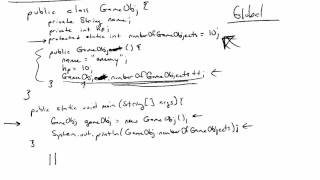 public class GameObj {
Global
private String name;
private int hp;
protected static int numberOfGameObjects = 10;
public GameObj () {
name = "enemy";
hp = 10;
GameObj.numberOfGameObjects++;
}
}
public static void main (String[] args) {
GameObj gameObj = new GameObj ();
System.out.println(GameObj.numberOfGameObjects);
}
11